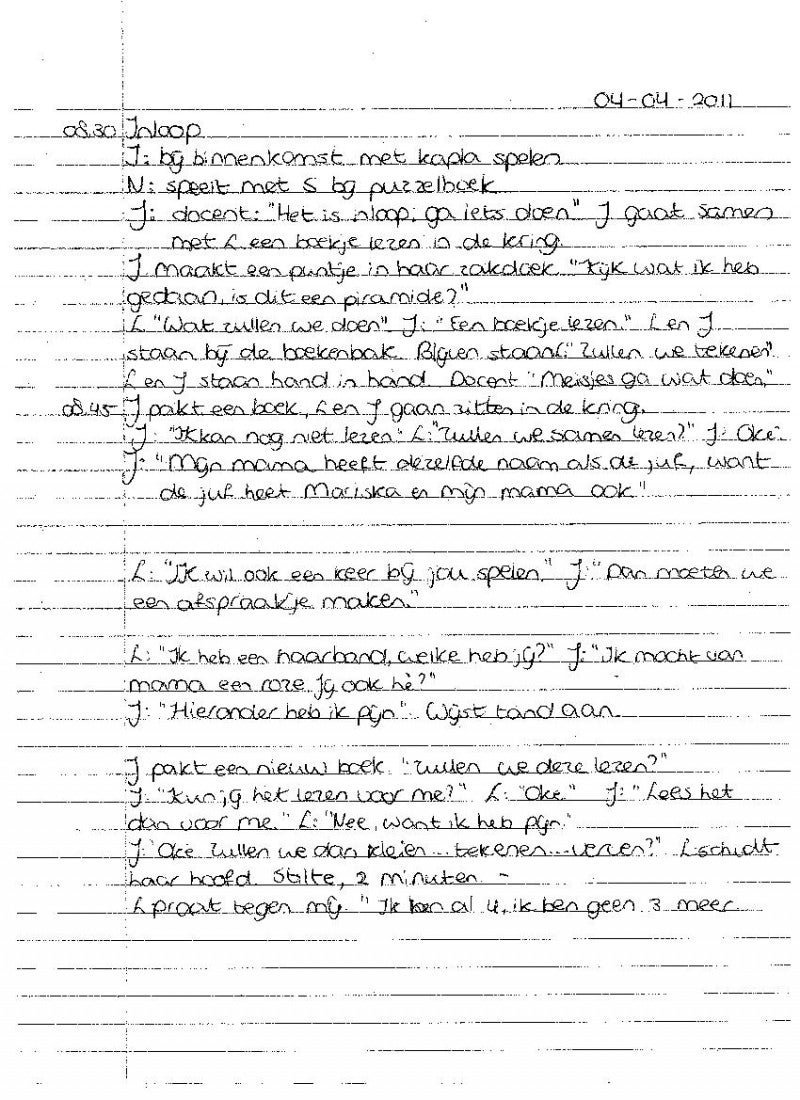 04-04-2011
08.30 Inloop
J: bij binnenkomst met kapla spelen
N: speelt met S bij puzzelboek
J: docent: "Het is inloop, ga iets doen" J gaat samen
met L een boekje lezen in de kring.
J maakt een puntje in haar zakdoek "Kijk wat ik heb
gedaan, is dit een piramide?"
L "Wat zullen we doen". J: "Een boekje lezen." L en J
staan bij de boekenbak. Blijven staan L: "Zullen we tekenen"
L en J staan hand in hand. Docent "Meisjes ga wat doen,"
08.45 J pakt een boek, L en J gaan zitten in de kring.
J: "Ik kan nog niet lezen" L: "Zullen we samen lezen?" J: Oké.
J: "Mijn mama heeft dezelfde naam als de juf, want
de juf heet Mariska en mijn mama ook"
L: "Ik wil ook een keer bij jou spelen." J: "Dan moeten we
een afspraakje maken."
L: "Ik heb een haarband, welke heb jij?" J: "Ik mocht van
mama een roze. Jij ook hè?"
J: "Hieronder heb ik pijn". Wijst tand aan.
J pakt een nieuw boek. "Zullen we deze lezen?"
J: "Kun jij het lezen voor me?" L: "Oke." J: "Lees het
dan voor me." L: "Nee, want ik heb pijn."
J: "Oké zullen we dan kleien... tekenen... verven?" L schudt
haar hoofd. Stilte, 2 minuten. -
L praat tegen mij. "Ik ben al 4, ik ben geen 3 meer.